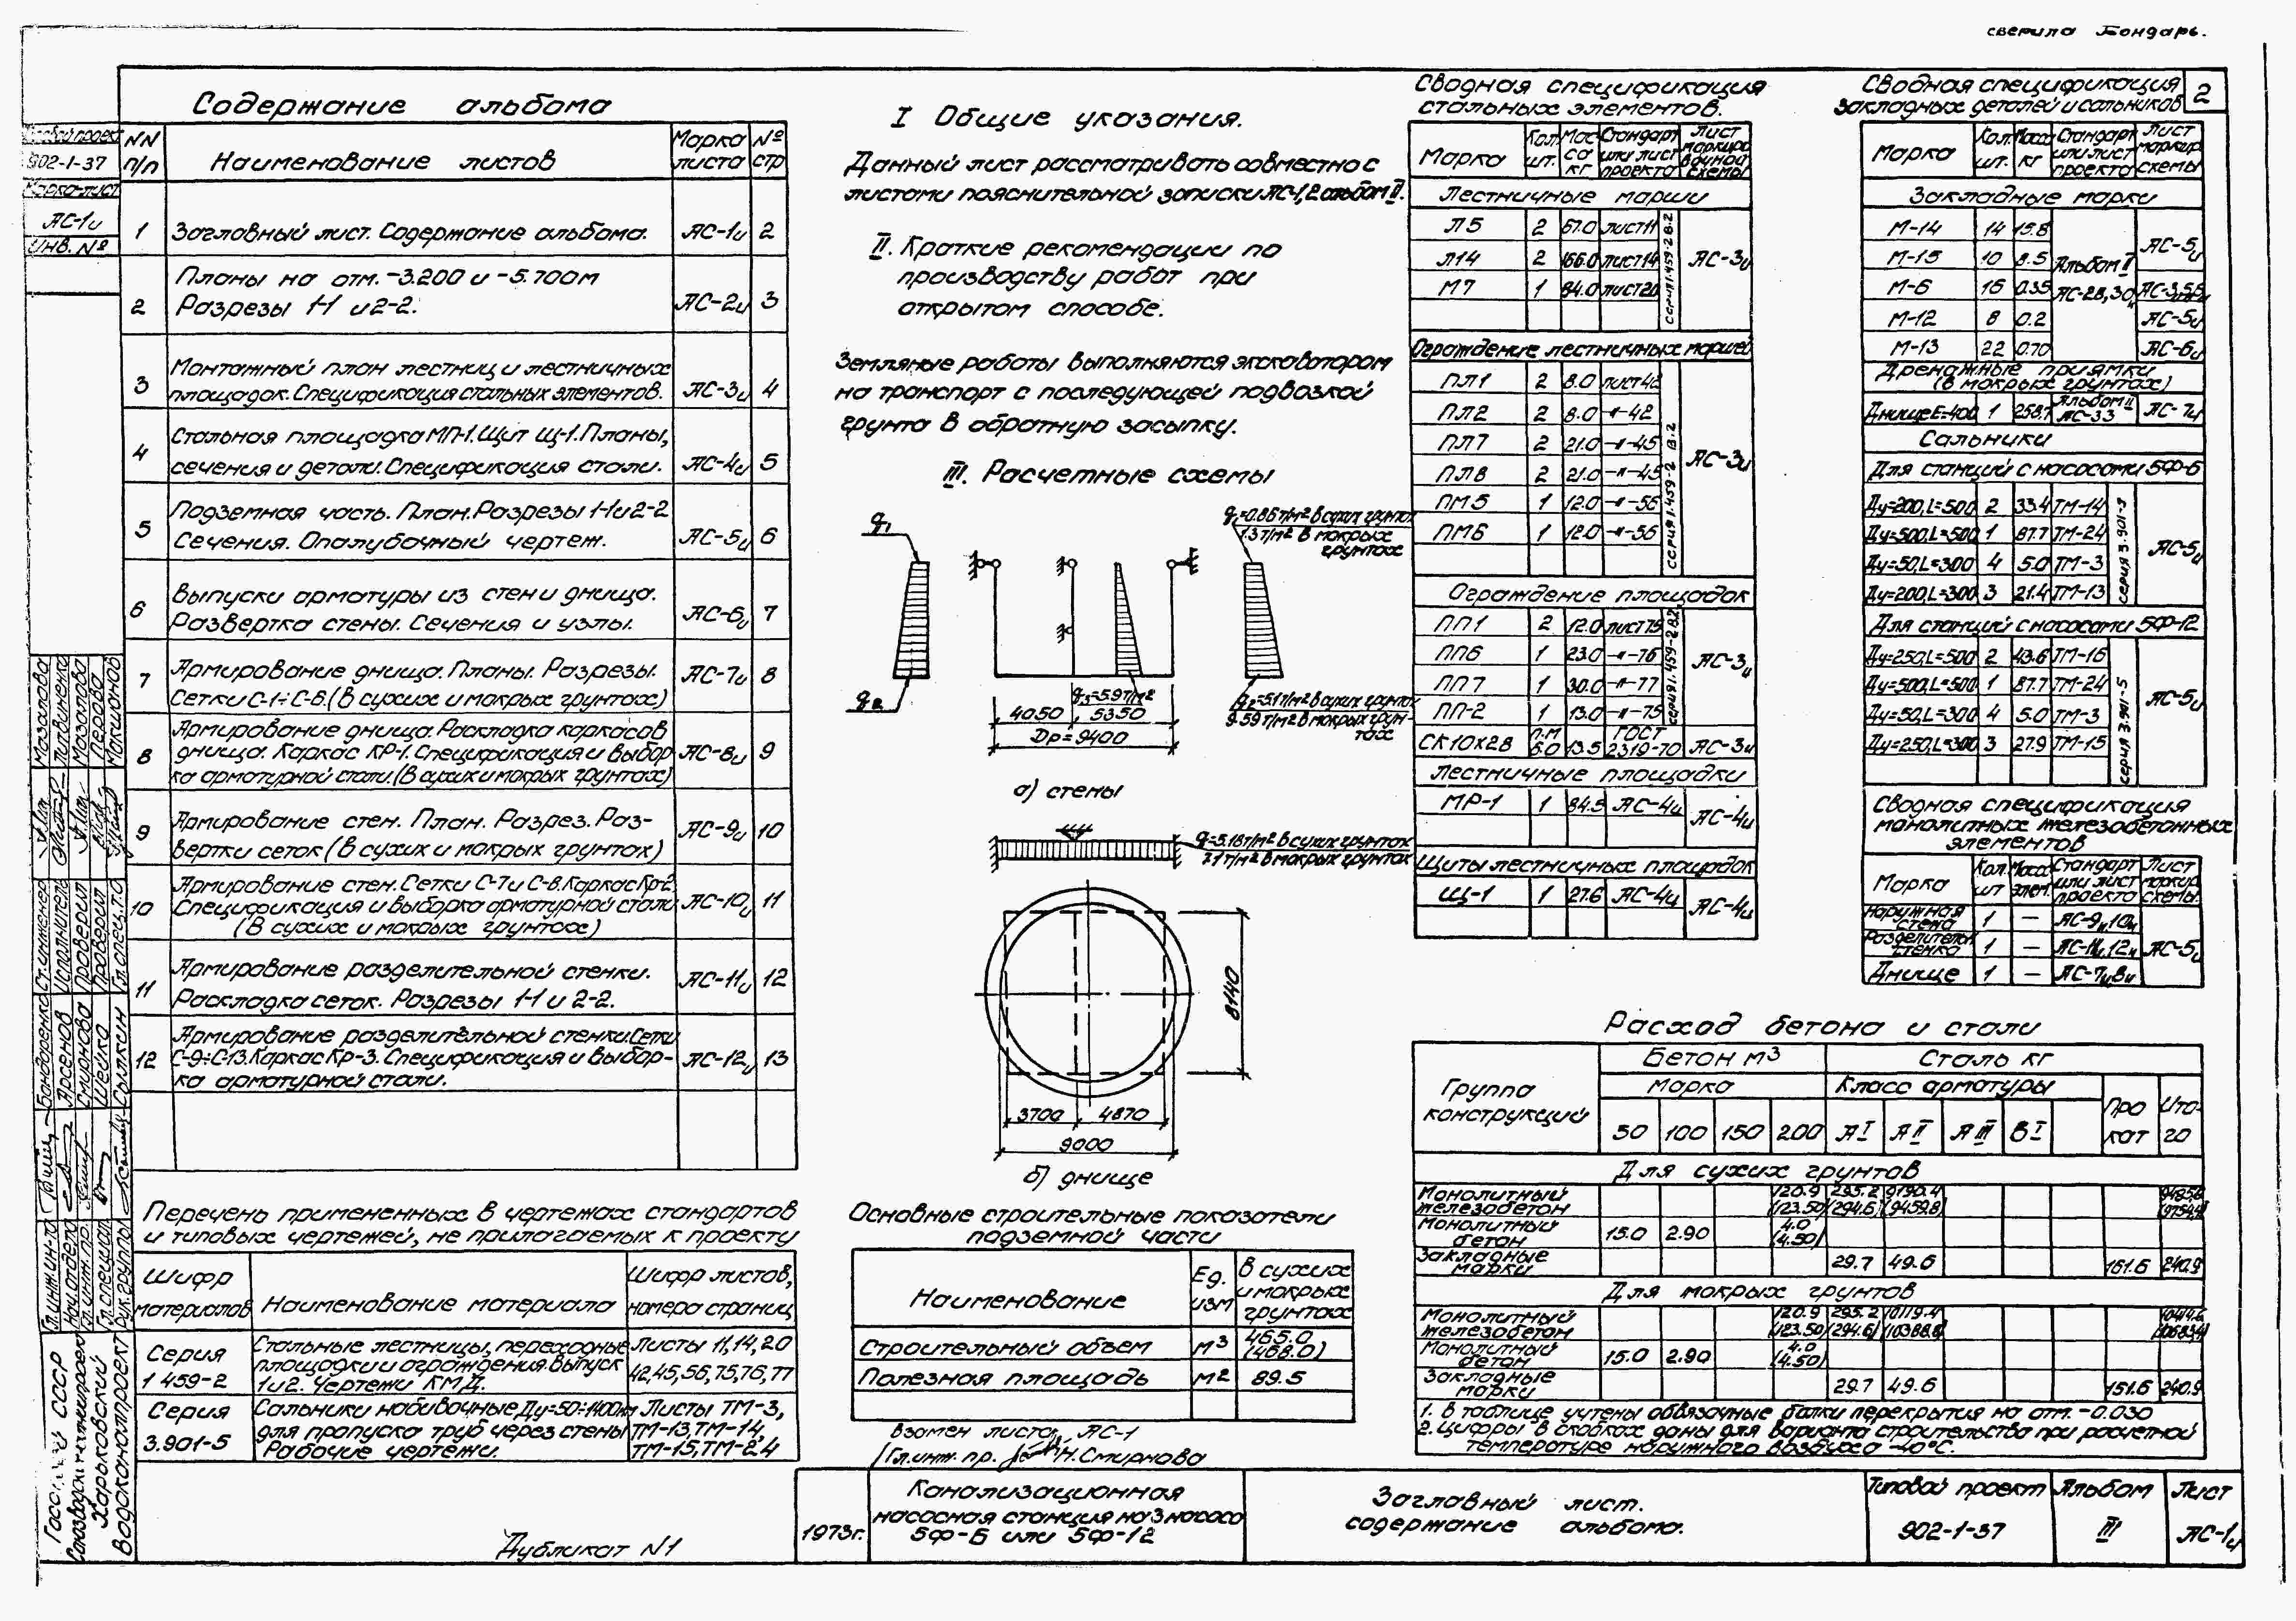 сверила Бондарь.
2
Содержание альбома
NN п/п
Наименование листов
Марка листа
№ стр
1 Заглавный лист. Содержание альбома. АС-1и 2
Планы на отм. -3.200 и -5.700м
2 Разрезы 1-1 и 2-2. АС-2и 3
Монтажный план лестниц и лестничных
3 площадок. Спецификация стальных элементов. АС-3и 4
Стальная площадка МП-1. Щит Щ-1. Планы,
4 сечения и детали. Спецификация стали. АС-4и 5
Подземная часть. План. Разрезы 1-1 и 2-2
5 Сечения. Опалубочный чертеж. АС-5и 6
Выпуски арматуры из стен и днища.
6 Развертка стены. Сечения и узлы. АС-6и 7
Армирование днища. Планы. Разрезы.
7 Сетки С-1÷С-6. (в сухих и мокрых грунтах) АС-7и 8
Армирование днища. Раскладка каркасов
8 днища. Каркас КР-1. Спецификация и выбор АС-8и 9
ка арматурной стали. (в сухих и мокрых грунтах)
Армирование стен. План. Разрез. Раз-
9 вертки сеток (в сухих и мокрых грунтах) АС-9и 10
Армирование стен. Сетки С-7 и С-8. Каркас Кр-2.
10 Спецификация и выборка арматурной стали АС-10и 11
(В сухих и мокрых грунтах)
Армирование разделительной стенки.
11 Раскладка сеток. Разрезы 1-1 и 2-2. АС-11и 12
Армирование разделительной стенки. Сетки
12 С-9÷С-13. Каркас Кр-3. Спецификация и выбор- АС-12и 13
ка арматурной стали.
Перечень примененных в чертежах стандартов
и типовых чертежей, не прилагаемых к проекту
Шифр материалов
Наименование материала
Шифр листов, номера страниц
Серия 1 459-2
Стальные лестницы, переходные
площадки и ограждения. Выпуск
1 и 2. Чертежи КМД.
Листы 11, 14, 20
42,45,56,75,76,77
Серия 3.901-5
Сальники набивочные Ду=50÷1400м
для пропуска труб через стены
Рабочие чертежи.
Листы ТМ-3,
ТМ-13, ТМ-14,
ТМ-15, ТМ-24
I Общие указания.
Данный лист рассматривать совместно с
листами пояснительной записки АС-1,2 альбом II.
II. Краткие рекомендации по
производству работ при
открытом способе.
Земляные работы выполняются экскаватором
на транспорт с последующей подвозкой
грунта в обратную засыпку.
III. Расчетные схемы
q₁
q₂
q₁=0.86т/м² в сухих грунтах
1.3т/м² в мокрых
грунтах
q₃=5.9т/м²
q₂=5.1т/м² в сухих грунтах
9.59т/м² в мокрых грун-
тах
4050 5350
Dр=9400
а) стены
q=5.16т/м² в сухих грунтах
7.1т/м² в мокрых грунтах
8140
3700 4870
9000
б) днище
Основные строительные показатели
подземной части
Наименование
Ед. изм
В сухих и мокрых грунтах
Строительный объем м³ 465.0 (468.0)
Полезная площадь м² 89.5
Взамен листа АС-1
Гл. инж. пр. Н. Смирнова
Сводная спецификация
стальных элементов.
Марка
Кол. шт.
Масса кг
Стандарт или лист проекта
Лист маркировочной схемы
Лестничные марши
Л5 2 67.0 лист 11
Л14 2 166.0 лист 14 АС-3и
М7 1 84.0 лист 20
серия 1.459-2 в.2
Ограждение лестничных маршей
ПЛ1 2 8.0 лист 42
ПЛ2 2 8.0 -"-42
ПЛ7 2 21.0 -"-45 АС-3и
ПЛ8 2 21.0 -"-45
ПМ5 1 12.0 -"-56
ПМ6 1 12.0 -"-56
серия 1.459-2 в.2
Ограждение площадок
ПП1 2 12.0 лист 75
ПП6 1 23.0 -"-76 АС-3и
ПП7 1 30.0 -"-77
ПП-2 1 13.0 -"-75
серия 1.459-2 в.2
СК10х28 п.м 6.0 13.5 ГОСТ 2319-70 АС-3и
Лестничные площадки
МР-1 1 84.5 АС-4и АС-4и
Щиты лестничных площадок
Щ-1 1 27.6 АС-4и АС-4и
Сводная спецификация
закладных деталей и сальников
Марка
Кол. шт.
Масса кг
Стандарт или лист проекта
Лист маркир. схемы
Закладные марки
М-14 14 15.8 АС-5и
М-15 10 8.5 Альбом II
М-6 16 0.35 АС-28,30и АС-3,5,6и
М-12 8 0.2 АС-5и
М-13 22 0.70 АС-6и
Дренажные приямки
(в мокрых грунтах)
Днище Е=400 1 258.7 Альбом II АС-33 АС-7и
Сальники
Для станций с насосами 5Ф-6
Ду=200, L=500 2 33.4 ТМ-14
Ду=500, L=500 1 87.7 ТМ-24
Ду=50, L=300 4 5.0 ТМ-3 АС-5и
Ду=200, L=300 3 21.4 ТМ-13
серия 3.901-5
Для станций с насосами 5Ф-12
Ду=250, L=500 2 43.6 ТМ-16
Ду=500, L=500 1 87.7 ТМ-24
Ду=50, L=300 4 5.0 ТМ-3 АС-5и
Ду=250, L=300 3 27.9 ТМ-15
серия 3.901-5
Сводная спецификация
монолитных железобетонных
элементов
Марка
Кол. шт
Масса элем.
Стандарт или лист проекта
Лист маркир. схемы.
Наружная стена 1 — АС-9и,10и
Разделительн. стенка 1 — АС-11и,12и АС-5и
Днище 1 — АС-7и,8и
Расход бетона и стали
Группа конструкций
Бетон м³
Сталь кг
Марка
Класс арматуры
Про кат
Ито- го
50 100 150 200 А I А II А III В I
Для сухих грунтов
Монолитный железобетон 120.9 (123.50) 295.2 (294.6) 9190.4 (9459.8)
Монолитный бетон 15.0 2.90 4.0 (4.50)
Закладные марки 29.7 49.6 161.6 240.9
Для мокрых грунтов
Монолитный железобетон 120.9 (123.50) 295.2 (294.6) 10119.4 (10388.8)
Монолитный бетон 15.0 2.90 4.0 (4.50)
Закладные марки 29.7 49.6 151.6 240.9
1. В таблице учтены обвязочные балки перекрытия на отм. -0.030
2. Цифры в скобках даны для варианта строительства при расчетной
температуре наружного воздуха -40°С.
Дубликат N1
1973г.
Канализационная
насосная станция на 3 насоса
5Ф-6 или 5Ф-12
Заглавный лист.
содержание альбома.
Типовой проект
902-1-37
Альбом
III
Лист
АС-1и
Типовой проект
902-1-37
Марка-лист
АС-1и
Инв. №
Госстрой СССР
Союзводоканалпроект
Харьковский
Водоканалпроект
Гл. инж. ин-та Бондаренко
Нач. отдела Арсенов
Гл. инж. пр. Смирнова
Гл. специал. Шейко
Рук. группы Сылкин
Ст. инженер Мазалова
Исполнитель Литвиненко
Проверил Мазалова
Проверил Перова
Гл. спец. Т.О.